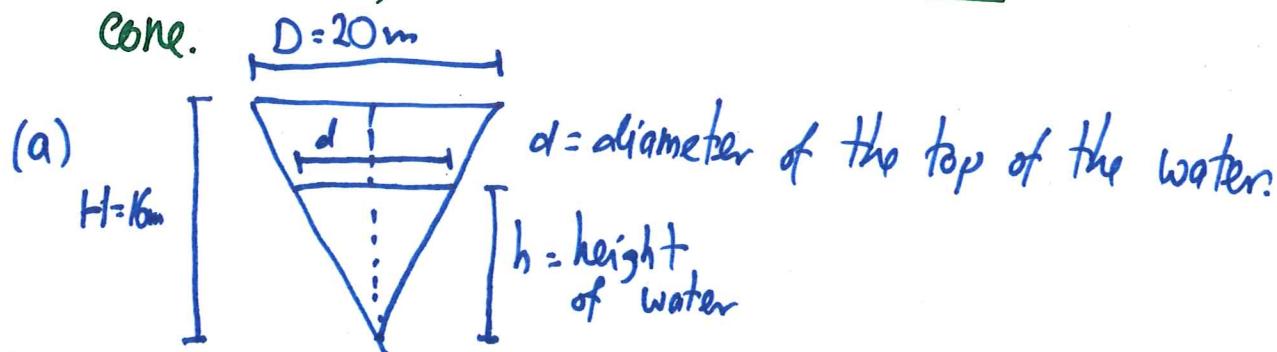 cone.
D=20m
(a)
d
d = diameter of the top of the water.
H=16m
h = height
of water